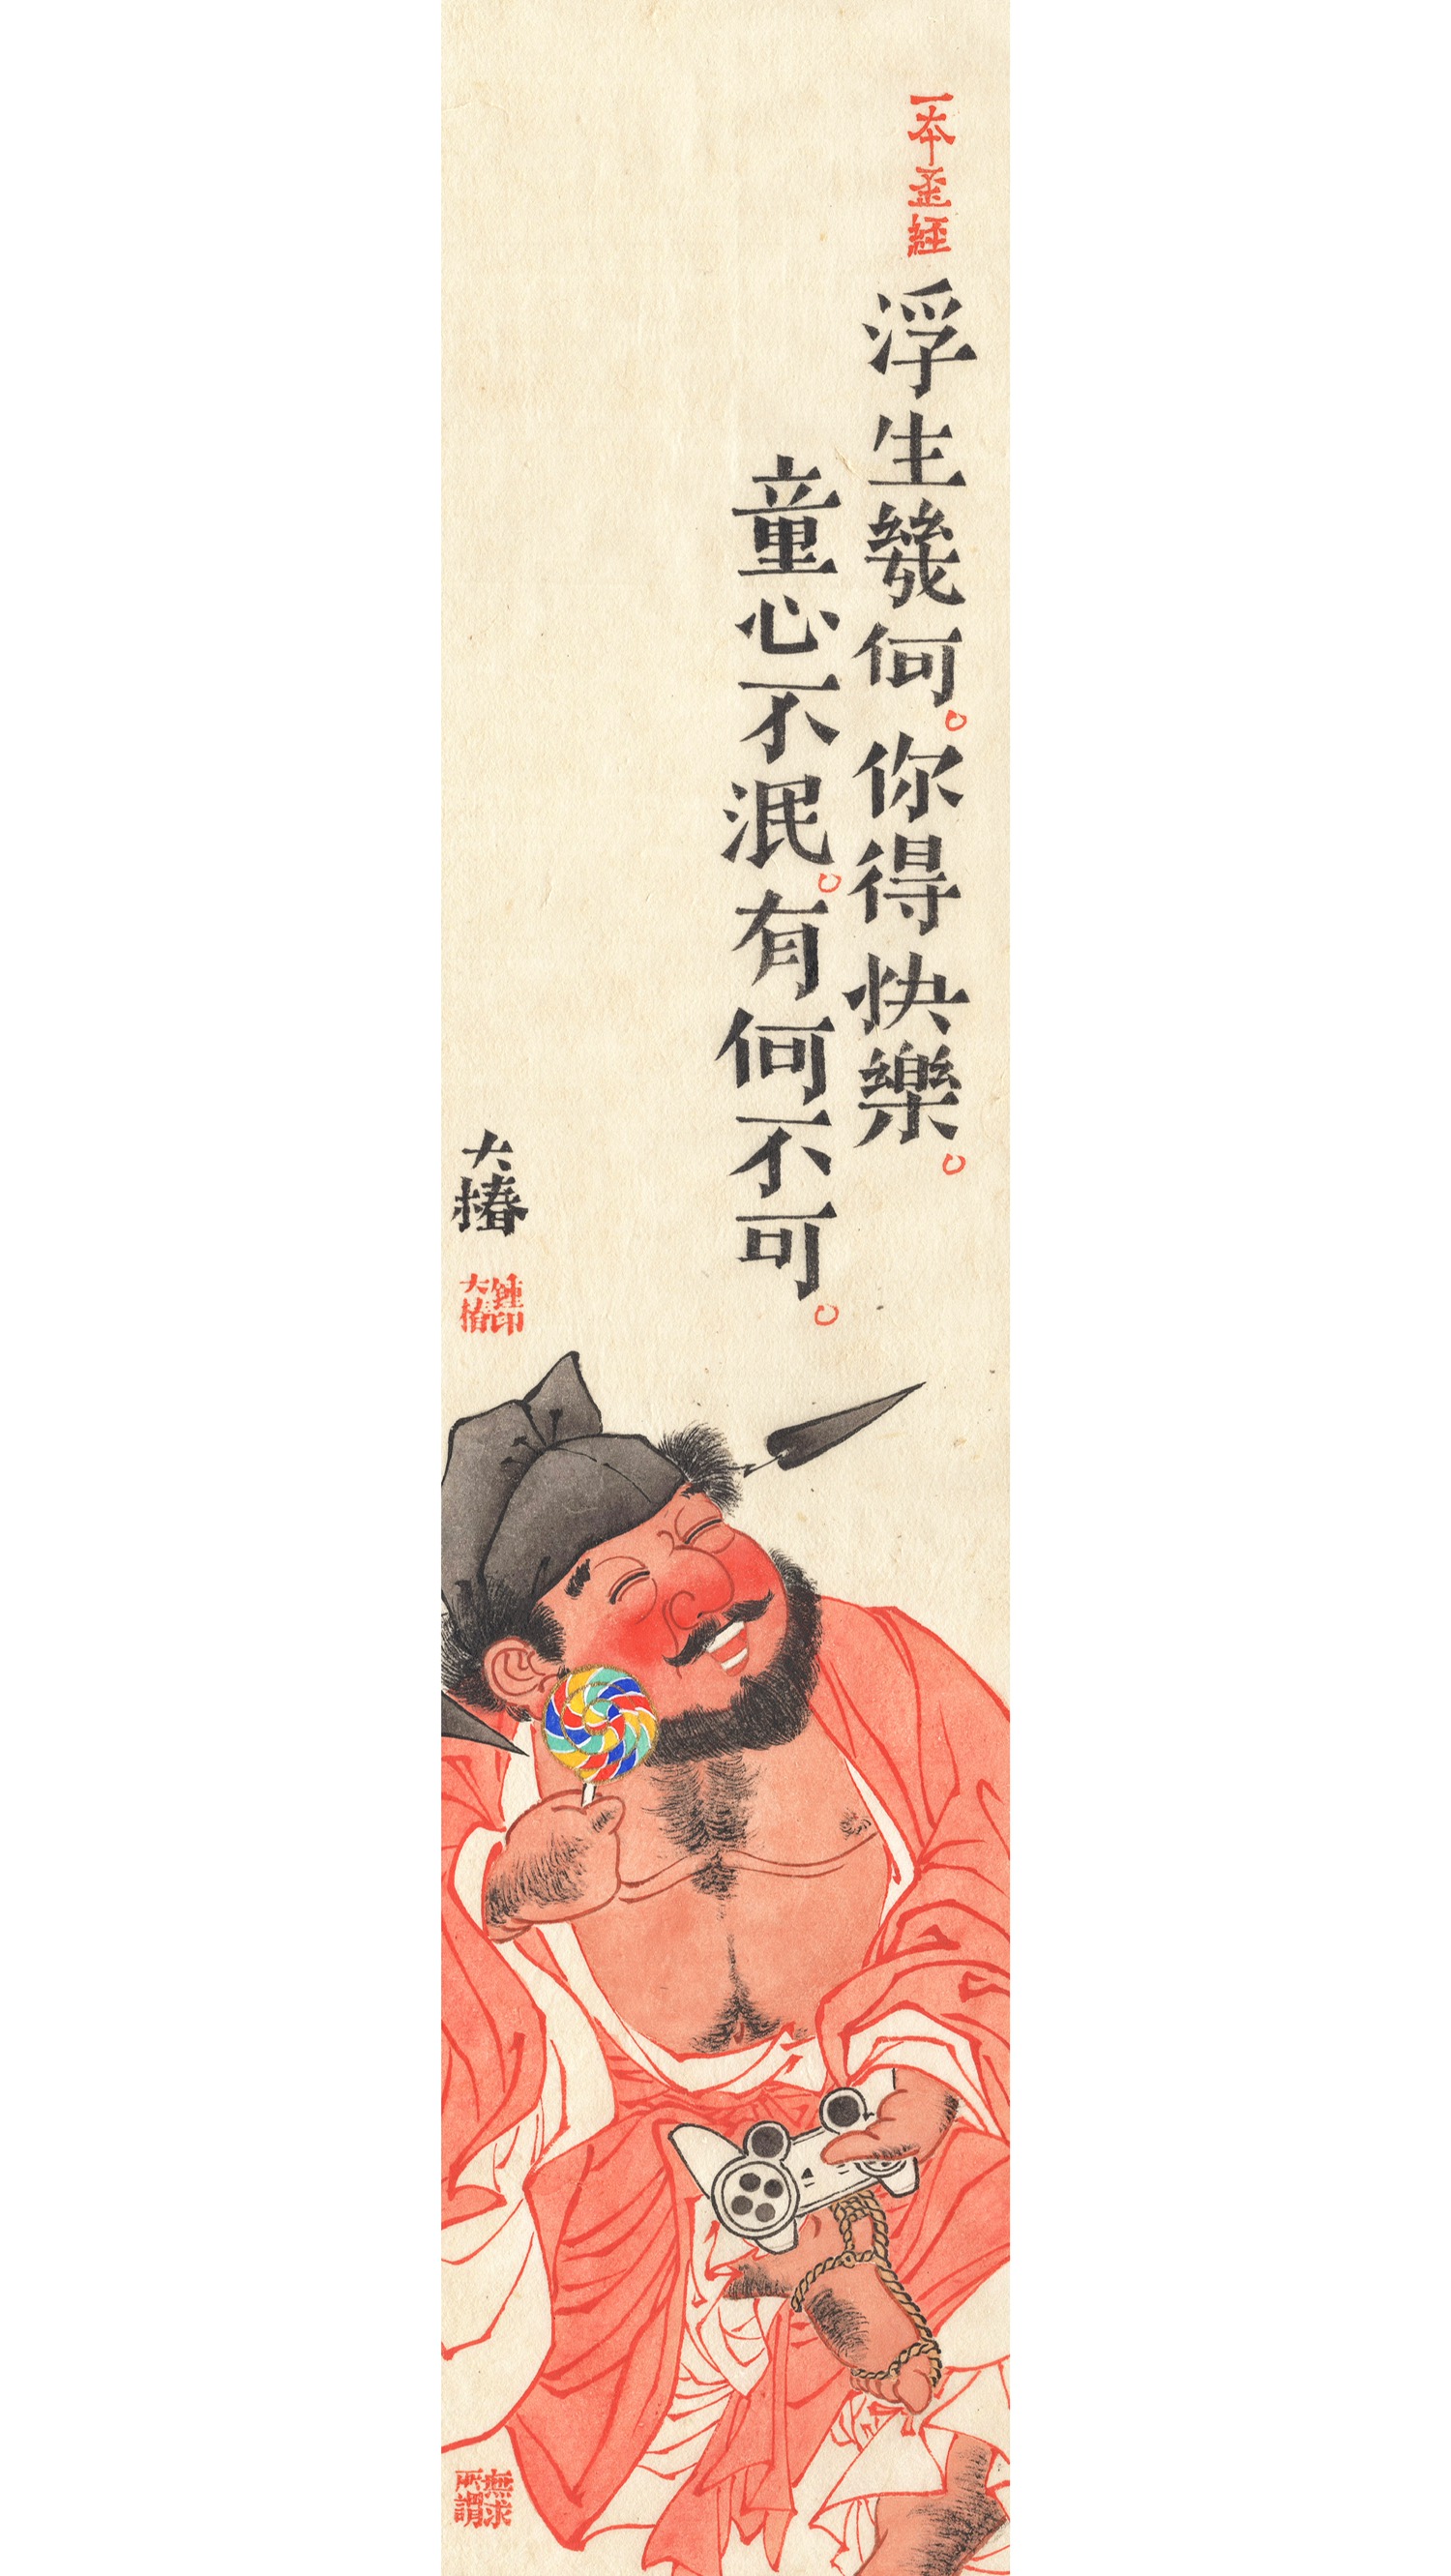 一本歪經
浮生幾何。你得快樂。
童心不泯。有何不可。
大椿
鍾印大椿
無求所謂